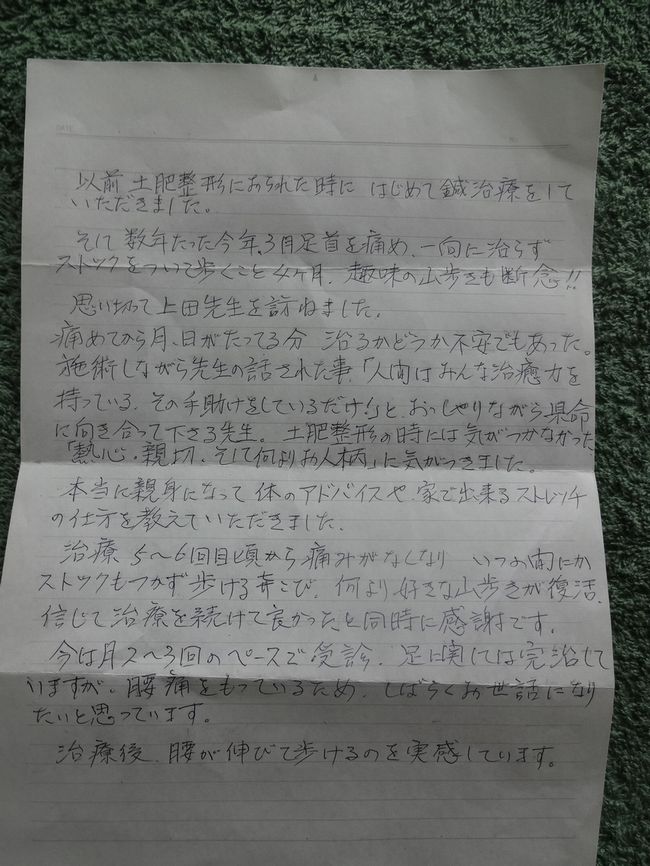 DATE
以前 土肥整形におられた時に はじめて鍼治療をして
いただきました。
そして数年たった今年、3月足首を痛め、一向に治らず
ストックをついて歩くこと4ヶ月、趣味の山歩きも断念!!
思い切って上田先生を訪ねました。
痛めてから月、日がたってる分 治るかどうか不安でもあった。
施術しながら先生の話された事、「人間はみんな治癒力を
持っている、その手助けをしているだけ!」と、おっしゃりながら県命
に向き合って下さる先生。土肥整形の時には気がつかなかった
「熱心・親切、そして何よりお人柄」に気がつきました。
本当に親身になって 体のアドバイスや、家で出来るストレッチ
の仕方を教えていただきました、
治療 5〜6回目頃から痛みがなくなり いつの間にか
ストックもつかず歩ける喜こび、何より好きな山歩きが復活、
信じて治療を続けて良かったと同時に感謝です。
今は月2〜3回のペースで受診、足に関しては完治して
いますが、腰痛をもっているため、しばらくお世話になり
たいと思っています。
治療後、腰が伸びて歩けるのを実感しています。